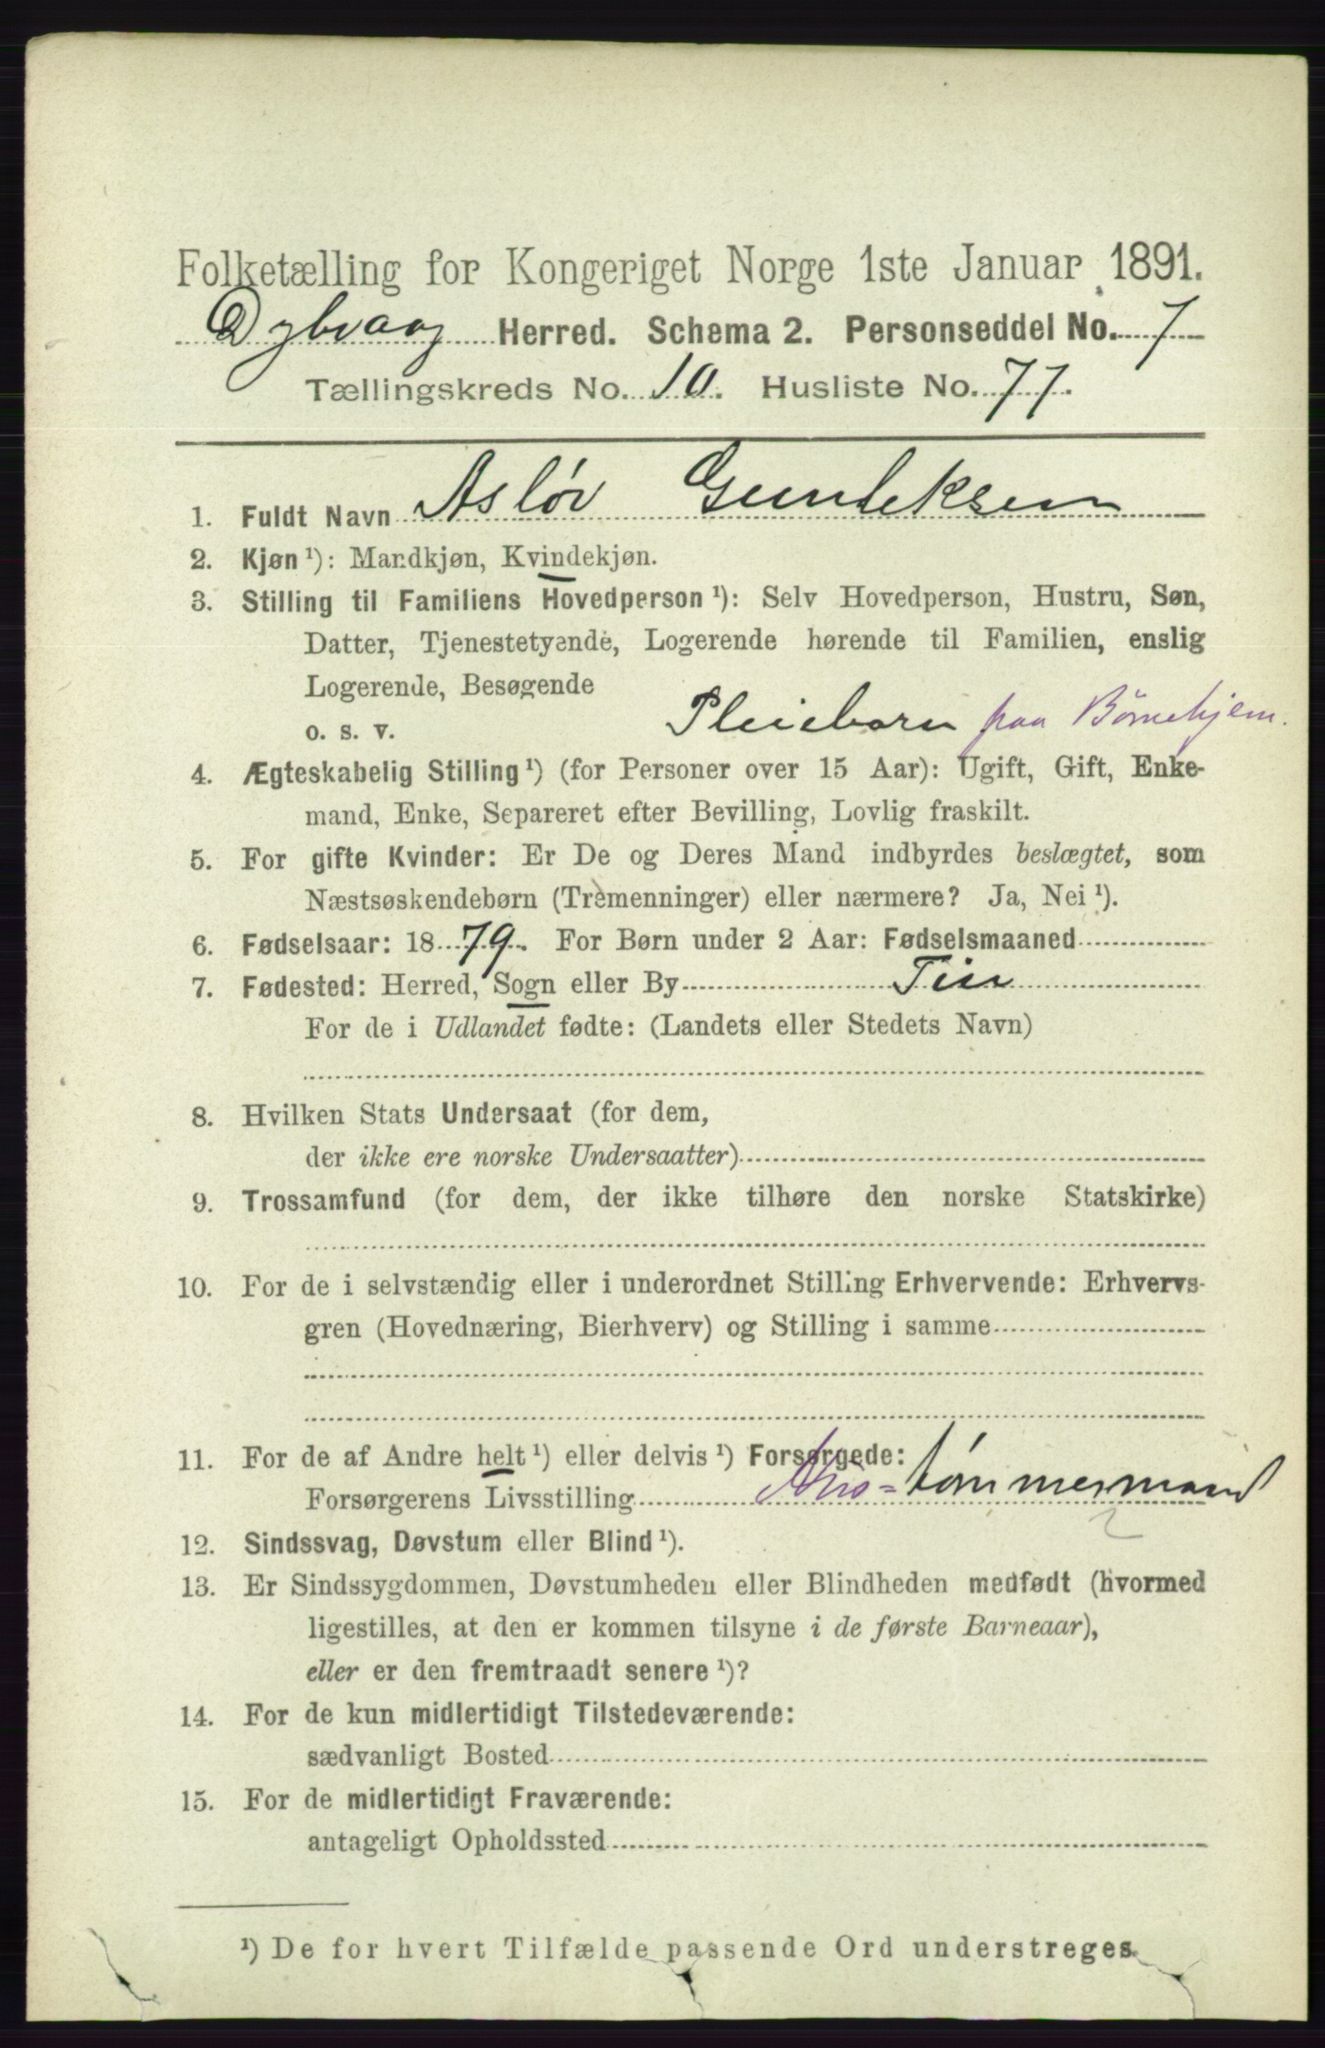 Folketælling for Kongeriget Norge 1ste Januar 1891.
Dybvaag Herred. Schema 2. Personseddel No. 7
Tællingskreds No. 10. Husliste No. 77.
1. Fuldt Navn Asløv Gunleksen
2. Kjøn ¹): Mandkjøn, Kvindekjøn.
3. Stilling til Familiens Hovedperson ¹): Selv Hovedperson, Hustru, Søn,
Datter, Tjenestetyende, Logerende hørende til Familien, enslig
Logerende, Besøgende
o. s. v. Pleiebarn paa Børnehjem.
4. Ægteskabelig Stilling ¹) (for Personer over 15 Aar): Ugift, Gift, Enke-
mand, Enke, Separeret efter Bevilling, Lovlig fraskilt.
5. For gifte Kvinder: Er De og Deres Mand indbyrdes beslægtet, som
Næstsøskendebørn (Tremenninger) eller nærmere? Ja, Nei ¹).
6. Fødselsaar: 1879. For Børn under 2 Aar: Fødselsmaaned
7. Fødested: Herred, Sogn eller By Tin
For de i Udlandet fødte: (Landets eller Stedets Navn)
8. Hvilken Stats Undersaat (for dem,
der ikke ere norske Undersaatter)
9. Trossamfund (for dem, der ikke tilhøre den norske Statskirke)
10. For de i selvstændig eller i underordnet Stilling Erhvervende: Erhvervs-
gren (Hovednæring, Bierhverv) og Stilling i samme
11. For de af Andre helt ¹) eller delvis ¹) Forsørgede:
Forsørgerens Livsstilling tømmermand
12. Sindssvag, Døvstum eller Blind ¹).
13. Er Sindssygdommen, Døvstumheden eller Blindheden medfødt (hvormed
ligestilles, at den er kommen tilsyne i de første Barneaar),
eller er den fremtraadt senere ¹)?
14. For de kun midlertidigt Tilstedeværende:
sædvanligt Bosted
15. For de midlertidigt Fraværende:
antageligt Opholdssted
¹) De for hvert Tilfælde passende Ord understreges.